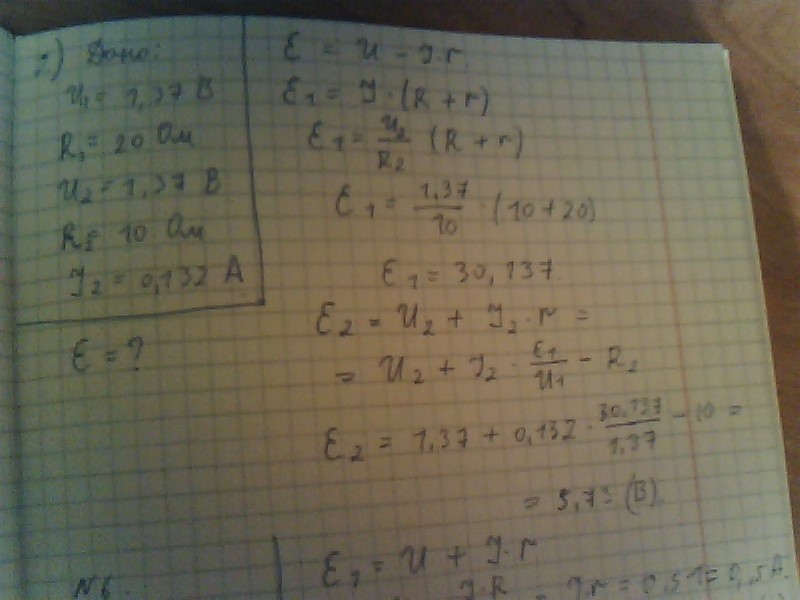 Дано:
U₁ = 1,37 В
R₁ = 20 Ом
U₂ = 1,37 В
R₂ = 10 Ом
I₂ = 0,132 А
ε = ?
ε = U - I·r
ε₁ = I·(R + r)
ε₁ = U₂/R₂ (R + r)
ε₁ = 1,37/10 · (10 + 20)
ε₁ = 30,137
ε₂ = U₂ + I₂·r =
= U₂ + I₂ · ε₁/U₁ - R₂
ε₂ = 1,37 + 0,132 · 30,137/1,37 - 10 =
= (В)
№6.
ε₁ = U + I·r
I·R